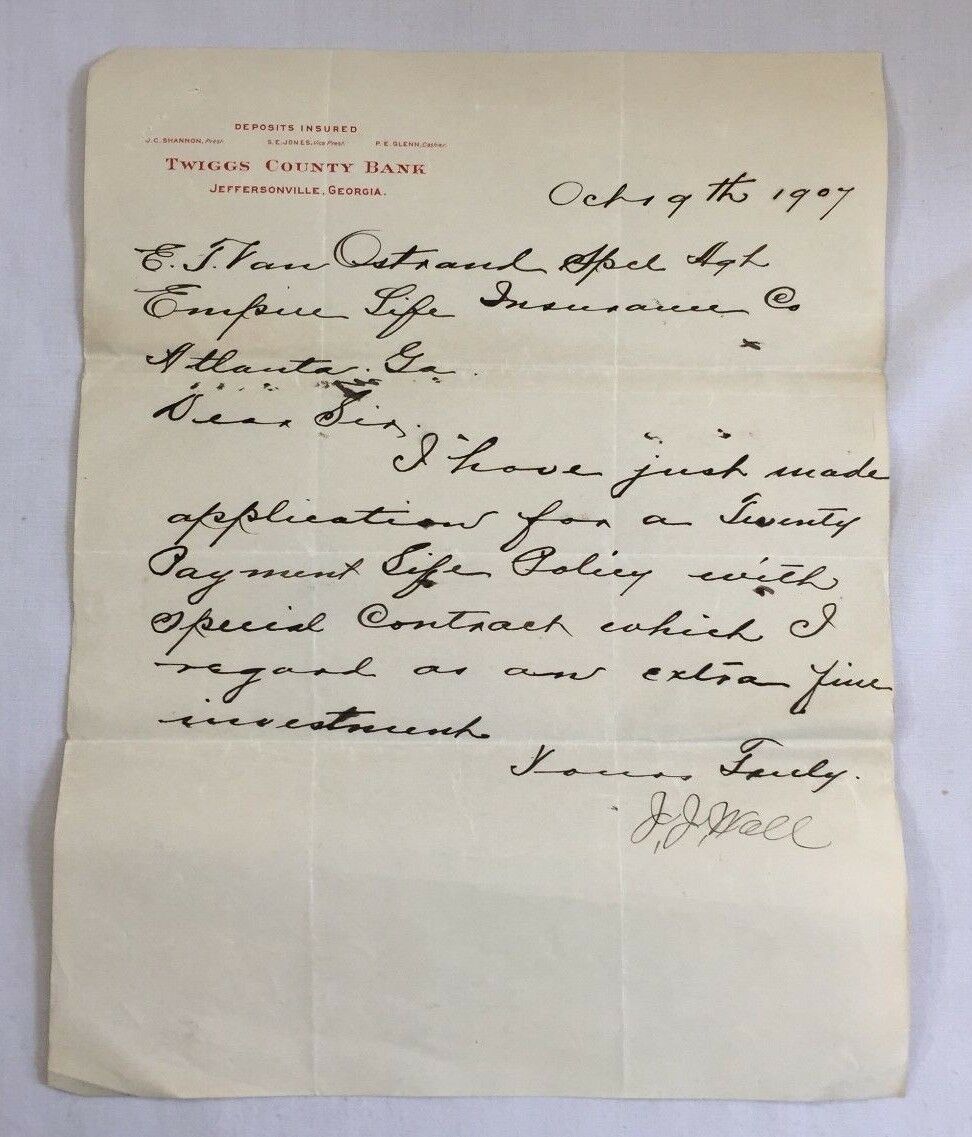 DEPOSITS INSURED
J.C. SHANNON, Prest. S.E. JONES, Vice Prest. P.E. GLENN, Cashier.
TWIGGS COUNTY BANK
JEFFERSONVILLE, GEORGIA.
Oct 9th 1907
E. T. Van Ostrand Spel Agt
Empire Life Insurance Co
Atlanta. Ga.
Dear Sir,
I have just made
application for a Twenty
Payment Life Policy with
special Contract which I
regard as an extra fine
investment
Yours Truly.
J. J. Wall